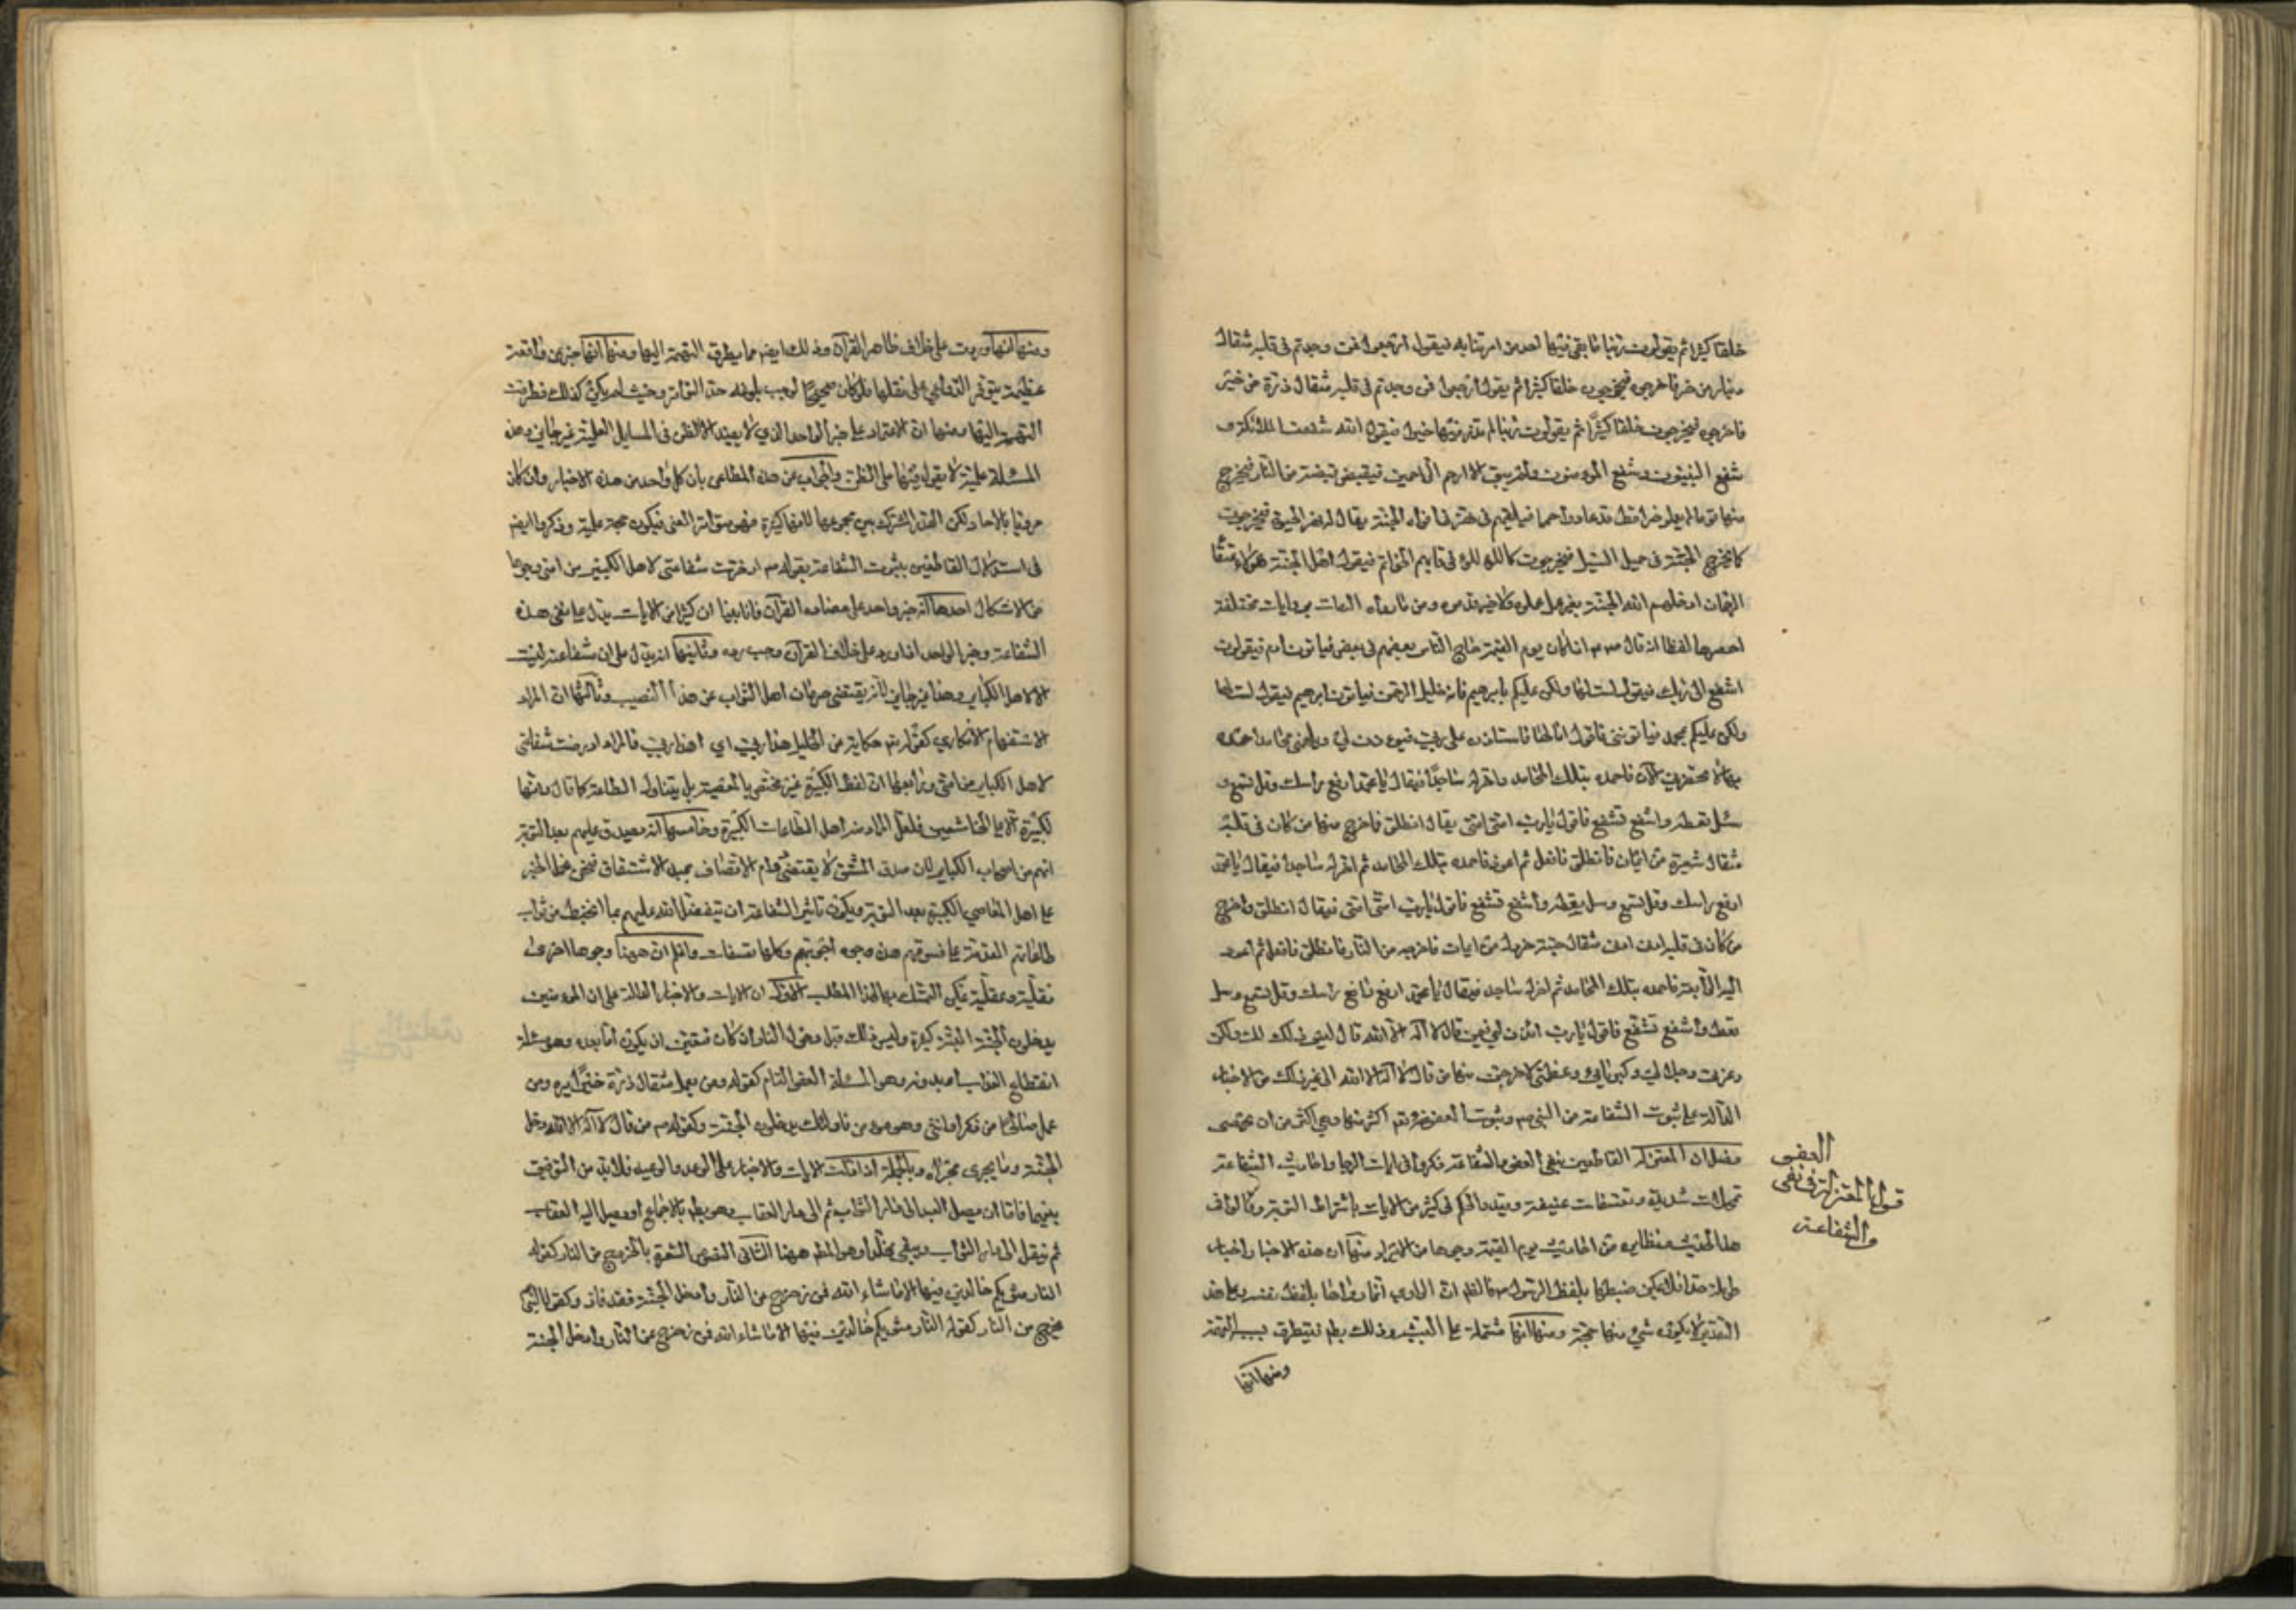 خلقا كثيرا ثم يقولون ربنا ما بقي فيها احد ممن امرتنا به فيقول ارجعوا فمن وجدتم في قلبه مثقال
دينار من خير فاخرجوه فيخرجون خلقا كثيرا ثم يقول ارجعوا فمن وجدتم في قلبه مثقال ذرة من خير
فاخرجوه فيخرجون خلقا كثيرًا ثم يقولون ربنا لم نذر فيها خيرا فيقول الله شفعت الملائكة و
شفع النبيون وشفع المؤمنون ولم يبق الا ارحم الراحمين فيقبض قبضة من النار فيخرج
منها قوما لم يعملوا خيرا قط قد عادوا حمما فيلقيهم في نهر في افواه الجنة يقال له نهر الحيوة فيخرجون
كما يخرج الحبة في حميل السيل فيخرجون كاللؤلؤ في رقابهم الخواتم فيقول اهل الجنة هؤلاء عتقاء
الرحمن ادخلهم الله الجنة بغير عمل عملوه ولا خير قدموه ومن ما رواه الثقات بروايات مختلفة
احصرها لفظا انه قال اذا كان يوم القيمة ماج الناس بعضهم في بعض فياتون ادم فيقولون
اشفع الى ربك فيقول لست لها ولكن عليكم بابرهيم فانه خليل الرحمن فياتون ابرهيم فيقول لست لها
ولكن عليكم بمحمد فياتونني فاقول انا لها فاستاذن على ربي فيوذن لي ويلهمني محامد احمده
بها لا تحضرني الان فاحمده بتلك المحامد واخر له ساجدًا فيقال يا محمد ارفع راسك وقل تسمع و
سل تعطه واشفع تشفع فاقول يا رب امتي امتي يقال انطلق فاخرج منها من كان في قلبه
مثقال شعيرة من ايمان فانطلق فافعل ثم اعود فاحمده بتلك المحامد ثم اخر له ساجدا فيقال يا محمد
ارفع راسك وقل تسمع وسل تعطه واشفع تشفع فاقول يا رب امتي امتي فيقال انطلق واخرج
من كان في قلبه ادنى ادنى مثقال حبة خردل من ايمان فاخرجه من النار فانطلق فافعل ثم اعود
اليه الرابعة فاحمده بتلك المحامد ثم اخر له ساجدا فيقال يا محمد ارفع راسك وقل تسمع وسل
تعطه واشفع تشفع فاقول يا رب ائذن لي فيمن قال لا اله الا الله قال ليس ذلك لك ولكن
وعزتي وجلالي وكبريائي وعظمتي لاخرجن منها من قال لا اله الا الله الى غير ذلك من الاخبار
الدالة على ثبوت الشفاعة من النبي وثبوت العفو اكثرها وهي اكثر من ان تحصى
المعتزلة القاطعين بنفي العفو والشفاعة ذكروا في ايات الرجا واحاديث الشفاعة
تمحلات شديدة وتعسفات عنيفة وقيدوا الحكم في كثير من الايات باشتراط التوبة وقالوا في
هذا الحديث ونظايره من احاديث يوم القيمة وجوها من الايراد منها ان هذه الاخبار اخبار
طويلة جدا فلا يمكن ضبطها بلفظ الرسول فالظاهر ان الراوي انما رواها بلفظ نفسه وعلى هذا
التقدير لا يكون شيء منها حجة ومنها انها مشتملة على التشبيه وذلك بط فيتطرق بسبب التهمة
ومنها انها
العفو
قول المعتزلة في نفى
والشفاعة
ومنها انها وردت على خلاف ظاهر القرآن وذلك ايضا مما يطرق التهمة اليها ومنها انها خبر عن واقعة
عظيمة يتوفر الدواعي على نقلها فلو كان صحيحًا لوجب بلوغه حد التواتر وحيث لم يكن كذلك فطرقت
التهمة اليها ومنها ان الاعتماد على خبر الواحد الذي لا يفيد الا الظن في المسايل العلمية غير جايز وهذه
المسئلة علمية لا يعول فيها على الظن والجواب عن هذه المطاعن بان كل واحد من هذه الاخبار وان كان
مرويا بالاحاد ولكن القدر المشترك بين مجموعها لانها كثيرة فهو متواتر المعنى فيكون حجة علمية وذكروا ايضا
في استدلال القاطعين بثبوت الشفاعة بقوله ادخرت شفاعتي لاهل الكبير من امتي وجوها
من الاشكال احدها انه خبر واحد على مضادة القرآن فانا بينا ان كثيرا من الايات يدل على نفي هذه
الشفاعة وخبر الواحد اذا ورد على خلاف القرآن وجب رده وثانيها انه يدل على ان شفاعته ليست
الا لاهل الكباير وهذا غير جايز لانه يقتضي حرمان اهل الثواب عن هذا النصيب وثالثها ان المراد
الاستفهام الانكاري كقوله تع حكاية عن الخليل هذا ربي اي اهذا ربي فالمراد ادخرت شفاعتي
لاهل الكباير من امتي ورابعها ان لفظ الكبيرة غير مختص بالمعصية بل يتناول الطاعة كما قال وانها
لكبيرة الا على الخاشعين فلعل المراد منه اهل الطاعات الكبيرة وخامسها انه يصدق عليهم بعد التوبة
انهم من اصحاب الكباير لان صدق المشتق لا يقتضي دوام الاتصاف بمبدا الاشتقاق فنحن نحمل الخبر
على اهل المعاصي الكبيرة بعد التوبة ويكون تاثير الشفاعة ان يتفضل الله عليهم بما انحبط من ثواب
طاعاتهم المتقدمة على فسوقهم هذه وجوه اجوبتهم وكلها تعسفات واعلم ان ههنا وجوها اخرى
نقلية وعقلية يمكن التمسك بها لهذا المطلب الاول ان الايات والاخبار الدالة على ان المؤمنين
يدخلون الجنة البتة كثيرة وليس ذلك قبل دخول النار وان كان فتعين ان يكون اما بعده وهو مسئلة
انقطاع العذاب او بدونه وهو المسئلة العفو التام كقوله ومن يعمل مثقال ذرة خيرًا يره ومن
عمل صالحا من ذكر او انثى وهو مومن فاولئك يدخلون الجنة وكقوله من قال لا اله الا الله دخل
الجنة وما يجري مجراه وبالجملة اذا دلت الايات والاخبار على الوعد والوعيد فلا بد من التوفيق
بينهما فاما ان يصل العبد الى دار الثواب ثم الى دار العقاب وهو بط بالاجماع او يصل اليه العقاب
ثم ينقل الى دار الثواب ويبقى مخلدا وهو المط ههنا الثاني النصوص المشعرة بالخروج من النار كقوله
النار مثويكم خالدين فيها الا ما شاء الله فمن زحزح عن النار وادخل الجنة فقد فاز وكقوله النبي
يخرج من النار كقوله النار مثويكم خالدين فيها الا ما شاء الله فمن زحزح عن النار وادخل الجنة